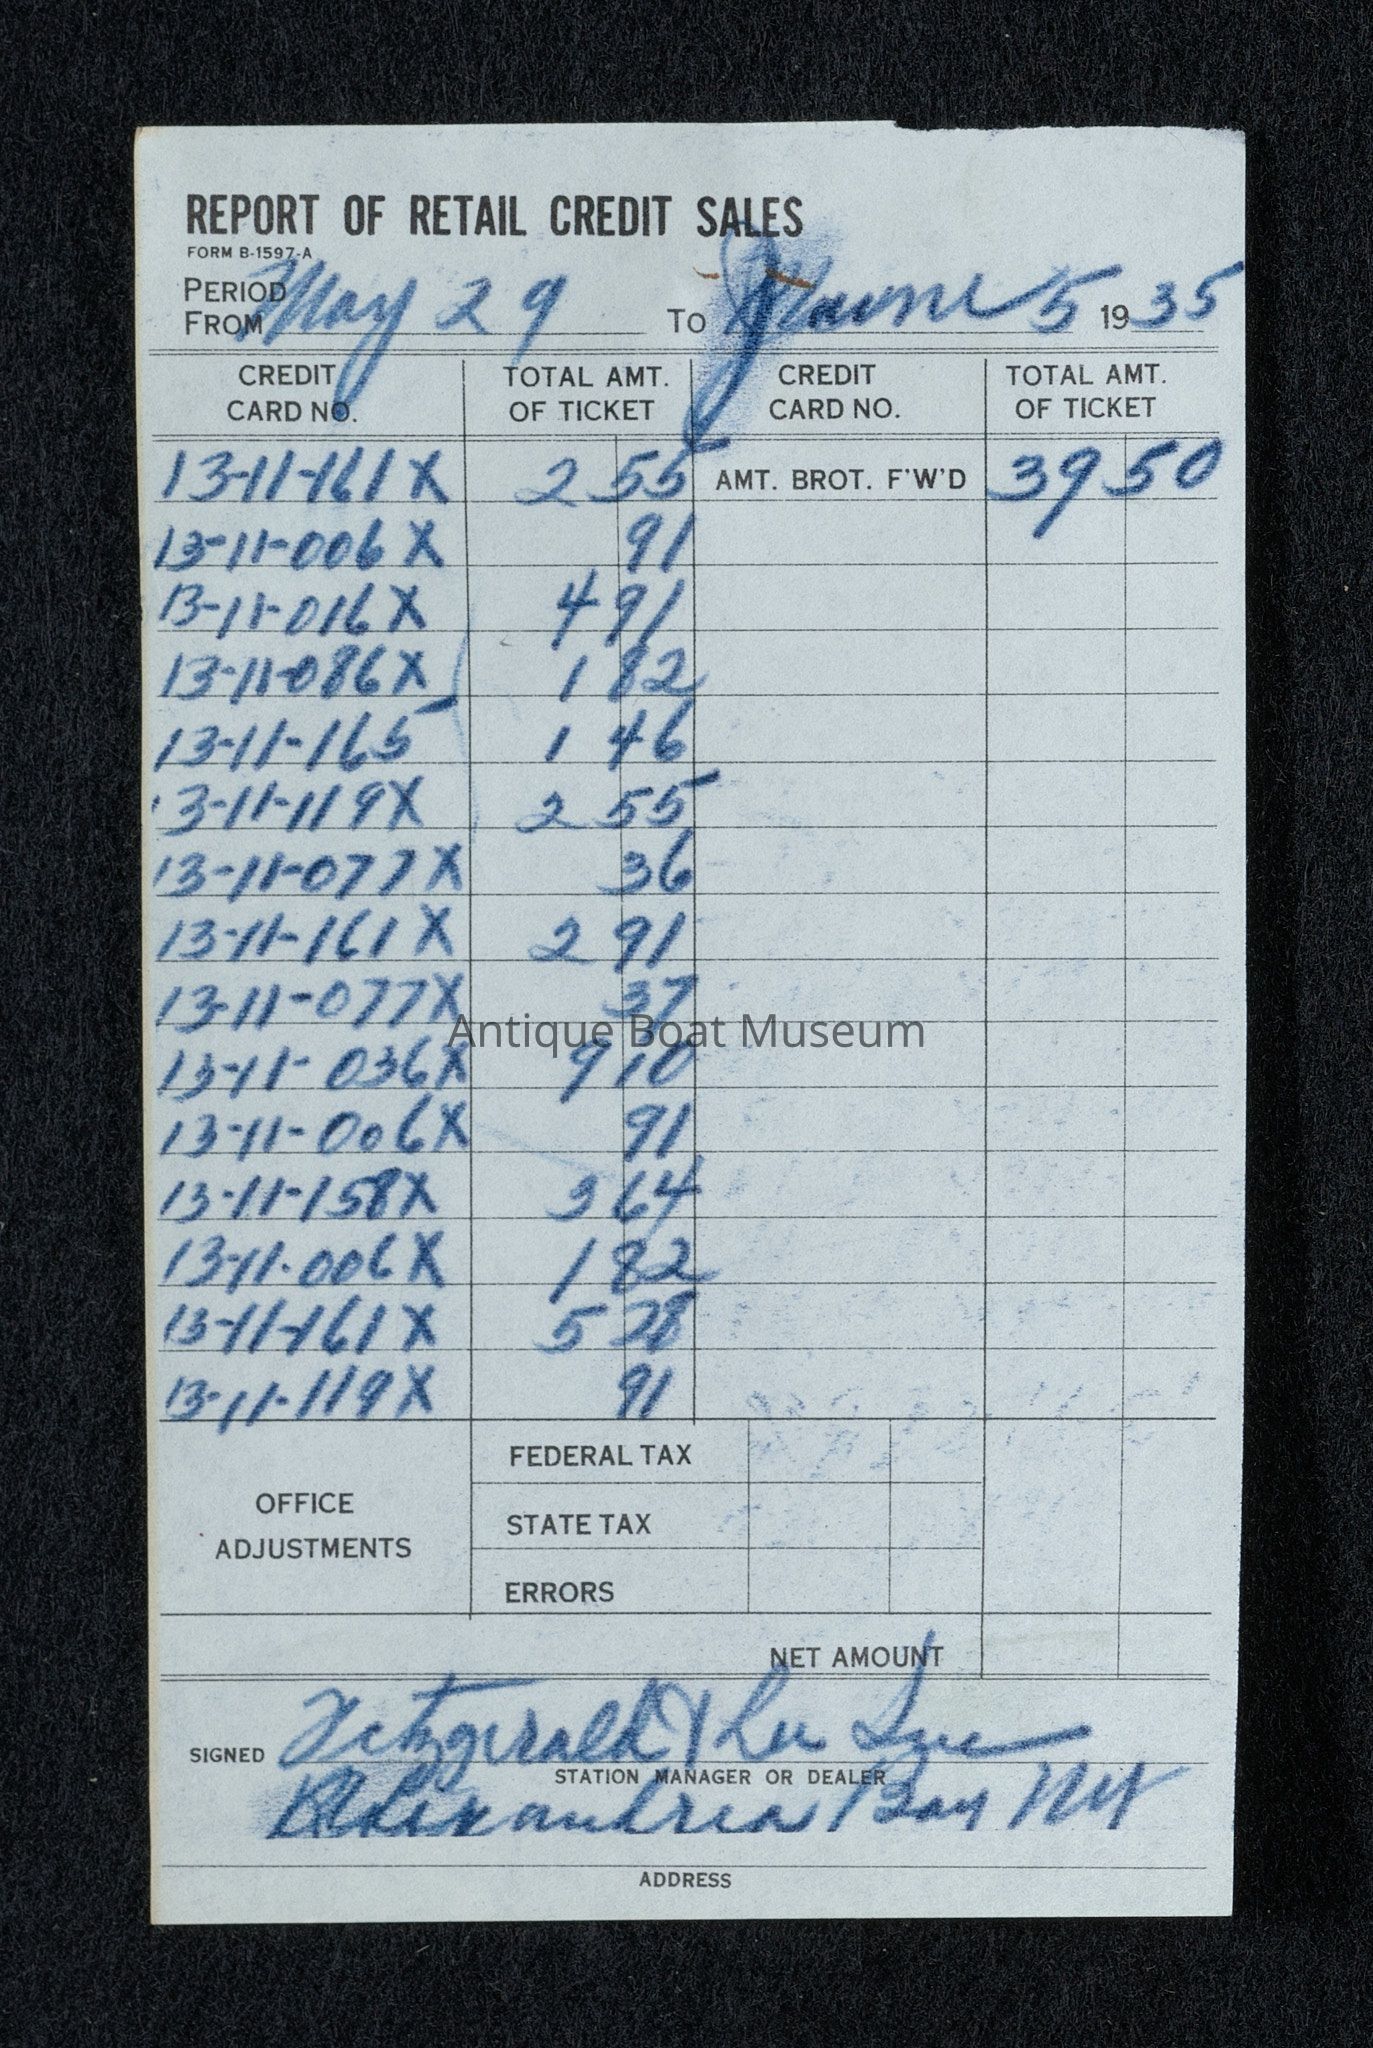 REPORT OF RETAIL CREDIT SALES
FORM B-1597-A
PERIOD FROM May 29 To June 5 1935
CREDIT CARD NO. TOTAL AMT. OF TICKET CREDIT CARD NO. TOTAL AMT. OF TICKET
13-11-161 X 2 55 AMT. BROT. F'W'D 39 50
13-11-006 X 91
13-11-016 X 4 91
13-11-086 X 1 82
13-11-165 1 46
13-11-119 X 2 55
13-11-077 X 36
13-11-161 X 2 91
13-11-077 X 37
Antique Boat Museum
13-11-036 X 9 10
13-11-006 X 91
13-11-158 X 3 64
13-11-006 X 1 82
13-11-161 X 5 28
13-11-119 X 91
OFFICE ADJUSTMENTS
FEDERAL TAX
STATE TAX
ERRORS
NET AMOUNT
SIGNED Fitzgerald & Lee Inc
STATION MANAGER OR DEALER
Alexandria Bay NY
ADDRESS